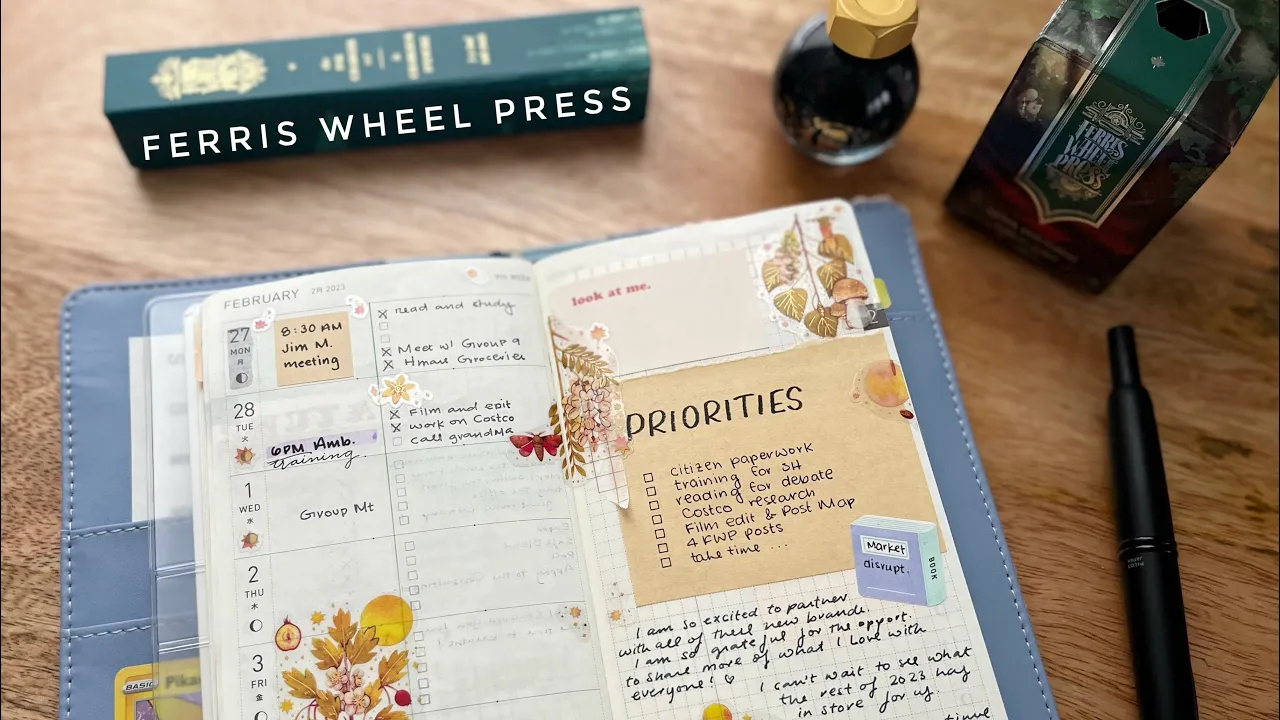 FERRIS WHEEL PRESS
FERRIS
WHEEL
PRESS
FEBRUARY 2月 2023
27
MON
月
8:30 AM
Jim M.
meeting
read and study
Meet w/ Group 9
Hmart Groceries
28
TUE
火
6PM Amb.
training.
Film and edit
work on Costco
call grandma
1
WED
水
Group Mt
2
THU
木
3
FRI
金
BASIC
Pika
look at me.
PRIORITIES
citizen paperwork
training for SH
reading for debate
Costco research
Film edit & Post Map
4 FWP posts
take time ...
Market
disrupt.
BOOK
I am so excited to partner
with all of these new brands.
I am so grateful for the opport.
to share more of what I love with
everyone! ♡
I can't wait to see what
the rest of 2023 has
in store for us.
PILOT
JAPAN